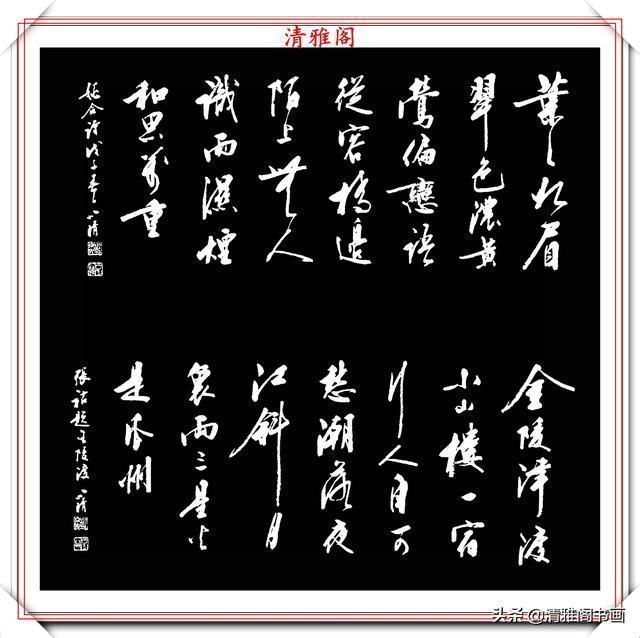 清雅阁
葉〻如眉
翠色濃黄
鶯偏戀語
從容橋邊
陌上無人
識雨濕煙
和思萬重
姚合詩戊子
金陵津渡
小山樓一宿
行人自可
愁潮落夜
江斜月
裏兩三星火
是瓜州
張祜題金陵渡
头条@清雅阁书画